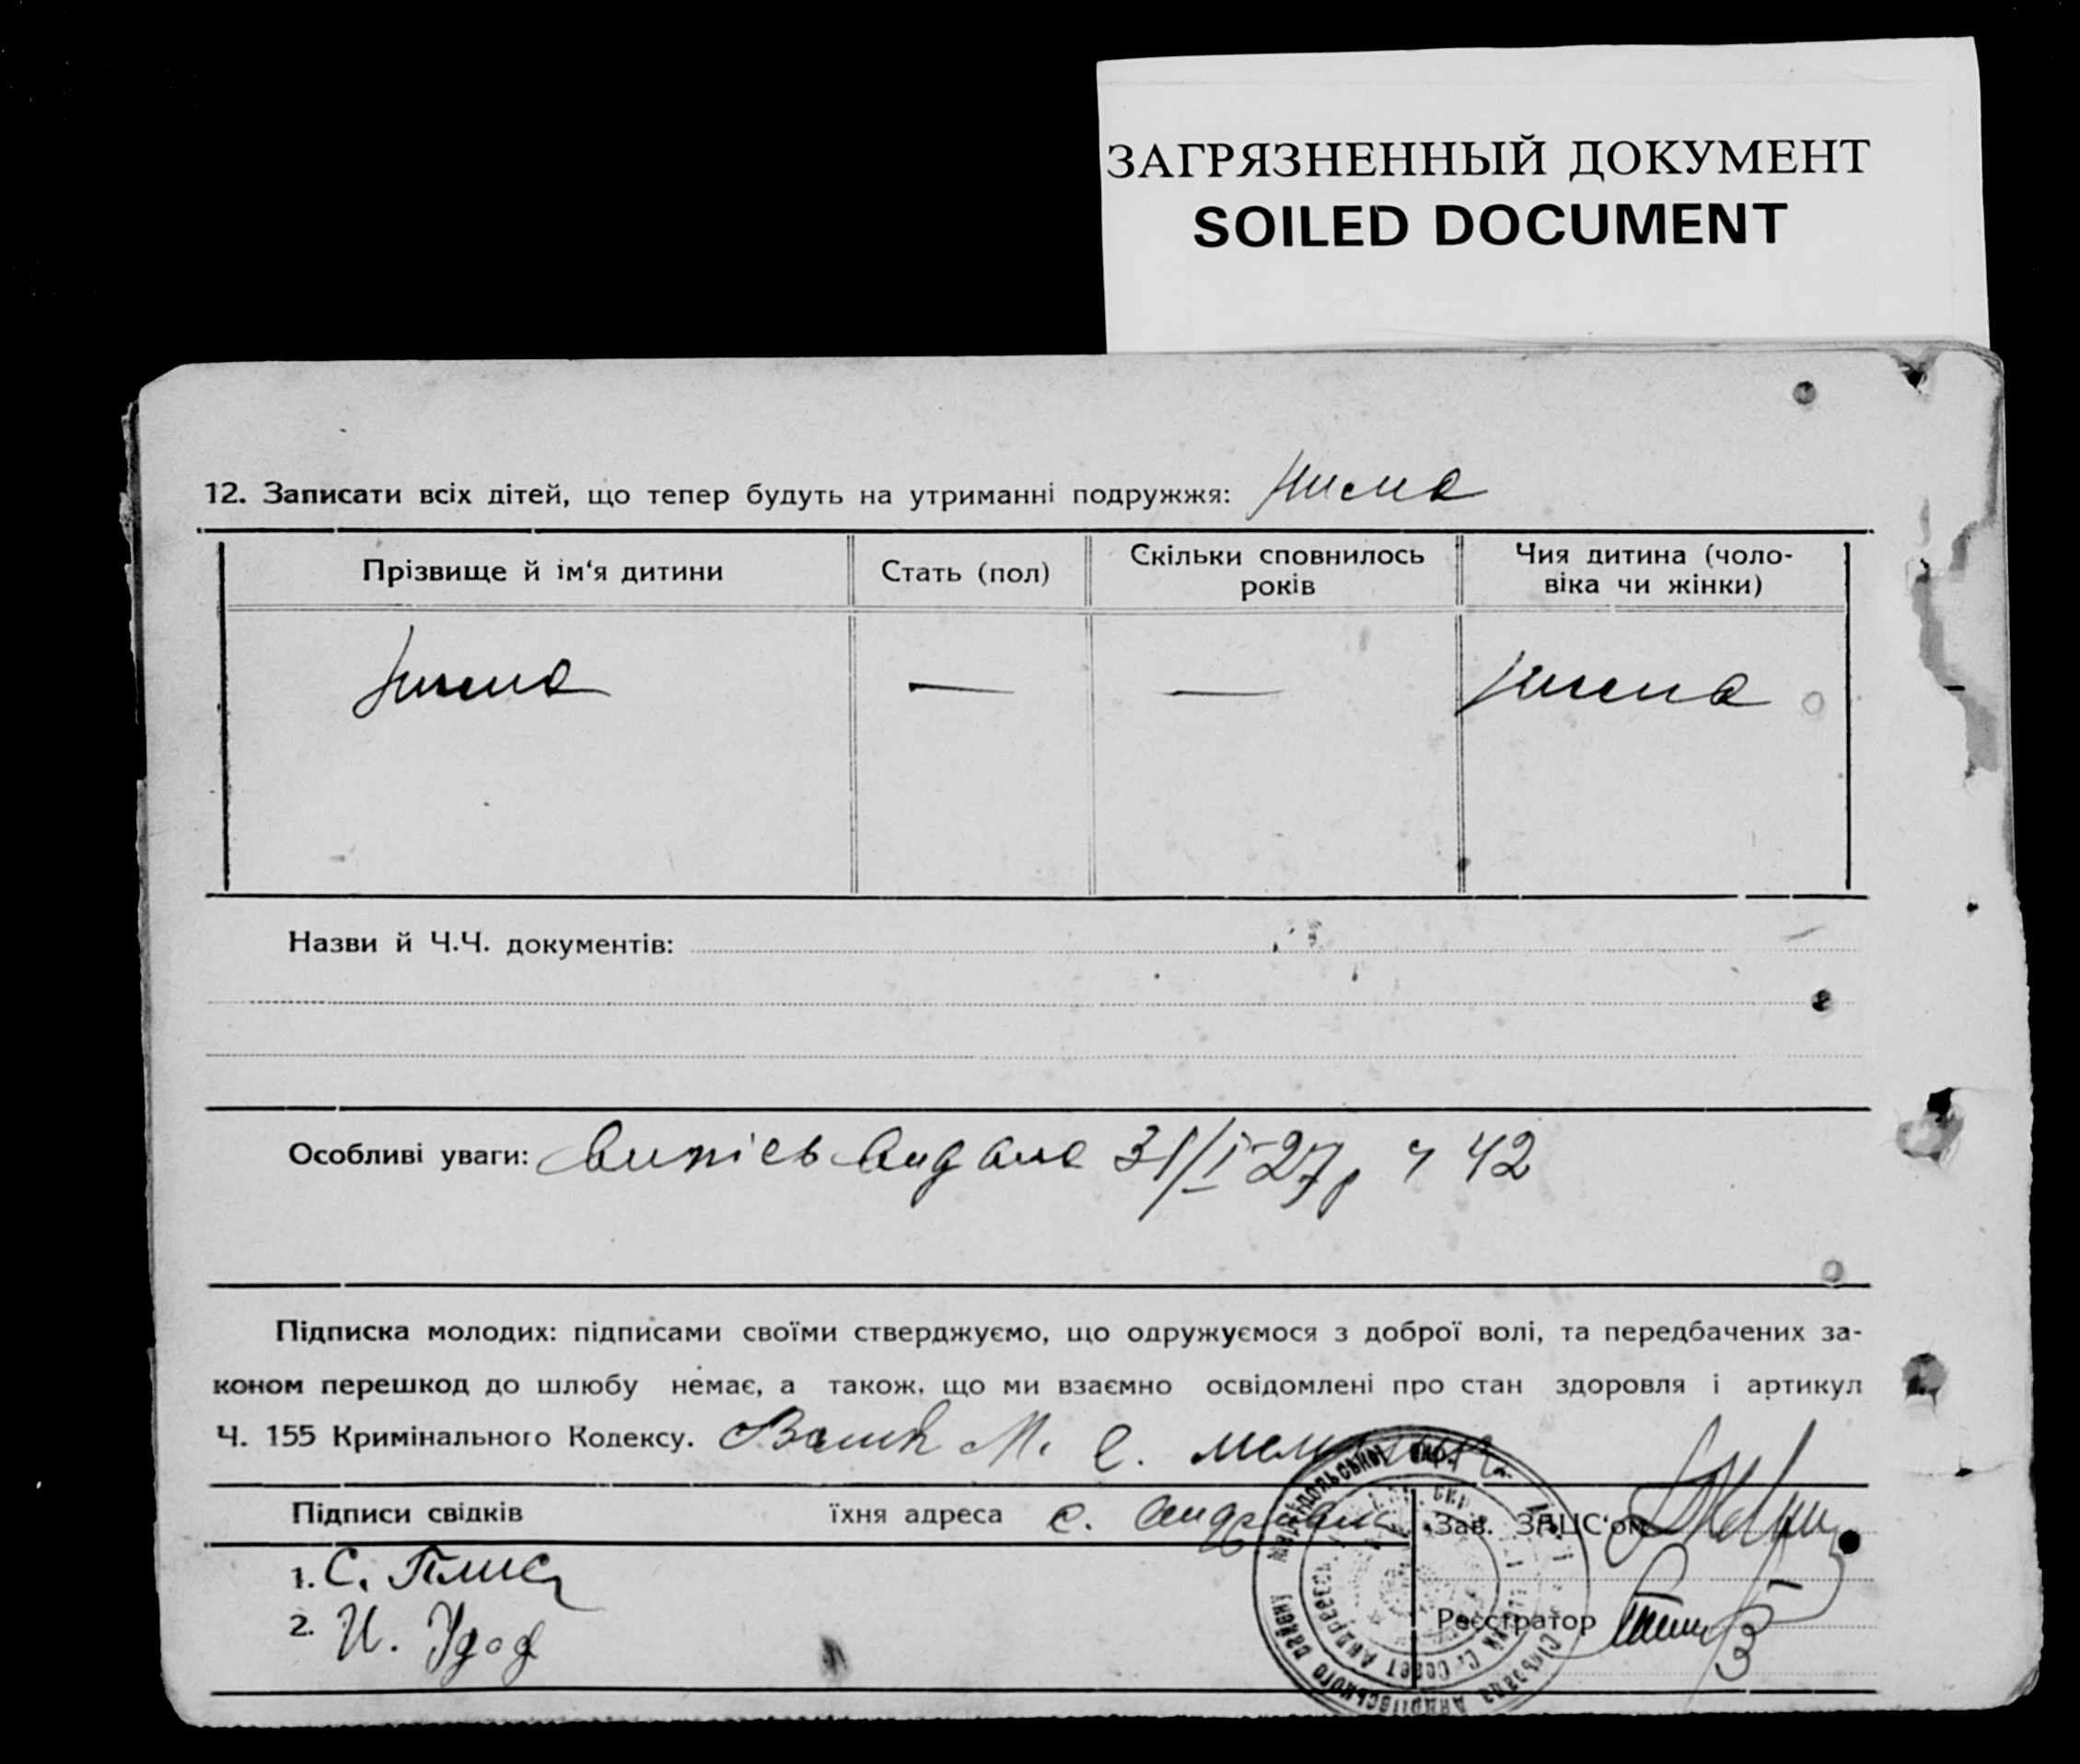 ЗАГРЯЗНЕННЫЙ ДОКУМЕНТ
SOILED DOCUMENT
12. Записати всіх дітей, що тепер будуть на утриманні подружжя: нима
Прізвище й ім'я дитини
Стать (пол)
Скільки сповнилось
років
Чия дитина (чоло-
віка чи жінки)
нима — — нима
Назви й Ч.Ч. документів:
Особливі уваги: 31/I-27р ч 42
Підписка молодих: підписами своїми стверджуємо, що одружуємося з доброї волі, та передбачених за-
коном перешкод до шлюбу немає, а також, що ми взаємно освідомлені про стан здоровля і артикул
Ч. 155 Кримінального Кодексу. М. Є.
Підписи свідків їхня адреса с.
Зав. ЗАЦС'ом
1. С.
2. И. Удод
Реєстратор